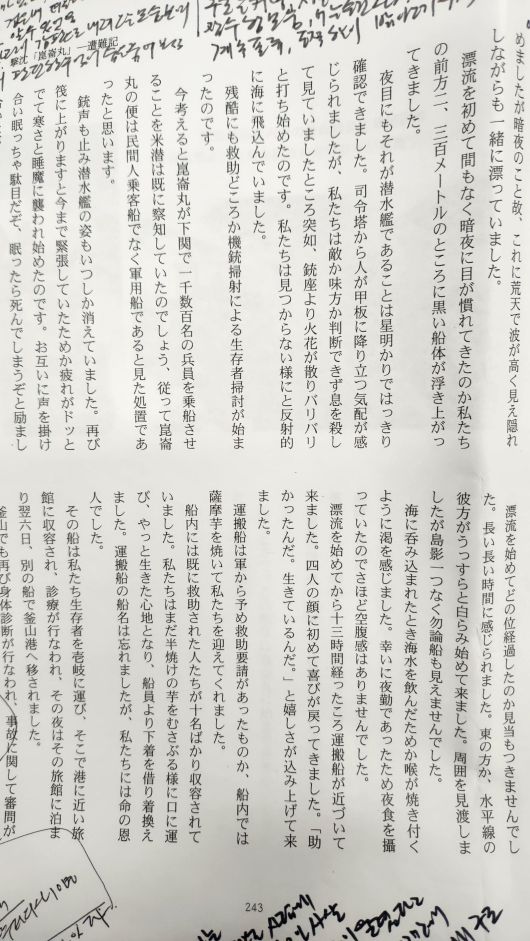 撃沈「崑崙丸」―遭難記
めましたが暗夜のこと故、これに荒天で波が高く見え隠れ
しながらも一緒に漂っていました。
漂流を初めて間もなく暗夜に目が慣れてきたのか私たち
の前方二、三百メートルのところに黒い船体が浮き上がっ
てきました。
夜目にもそれが潜水艦であることは星明かりではっきり
確認できました。司令塔から人が甲板に降り立つ気配が感
じられましたが、私たちは敵か味方か判断できず息を殺し
て見ていましたところ突如、銃座より火花が散りバリバリ
と打ち始めたのです。私たちは見つからない様にと反射的
に海に飛込んでいました。
残酷にも救助どころか機銃掃射による生存者掃討が始ま
ったのです。
今考えると崑崙丸が下関で一千数百名の兵員を乗船させ
ることを米潜は既に察知していたのでしょう、従って崑崙
丸の便は民間人乗客船でなく軍用船であると見た処置であ
ったと思います。
銃声も止み潜水艦の姿もいつしか消えていました。再び
筏に上がりますと今まで緊張していたためか疲れがドッと
でて寒さと睡魔に襲われ始めたのです。お互いに声を掛け
合い眠っちゃ駄目だぞ、眠ったら死んでしまうぞと励まし
漂流を始めてどの位経過したのか見当もつきませんでし
た。長い長い時間に感じられました。東の方か、水平線の
彼方がうっすらと白らみ始めて来ました。周囲を見渡しま
したが島影一つなく勿論船も見えませんでした。
海に呑み込まれたとき海水を飲んだためか喉が焼き付く
ように渇を感じました。幸いに夜勤であったため夜食を攝
っていたのでさほど空腹感はありませんでした。
漂流を始めてから十三時間経ったころ運搬船が近づいて
来ました。四人の顔に初めて喜びが戻ってきました。「助
かったんだ。生きているんだ。」と嬉しさが込み上げて来
ました。
運搬船は軍から予め救助要請があったものか、船内では
薩摩芋を焼いて私たちを迎えてくれました。
船内には既に救助された人たちが十名ばかり収容されて
いました。私たちはまだ半焼けの芋をむさぶる様に口に運
び、やっと生きた心地となり、船員より下着を借り着換え
ました。運搬船の船名は忘れましたが、私たちには命の恩
人でした。
その船は私たち生存者を壱岐に運び、そこで港に近い旅
館に収容され、診療が行なわれ、その夜はその旅館に泊ま
り翌六日、別の船で釜山港へ移されました。
釜山でも再び身体診断が行なわれ、事故に関して審問が
243